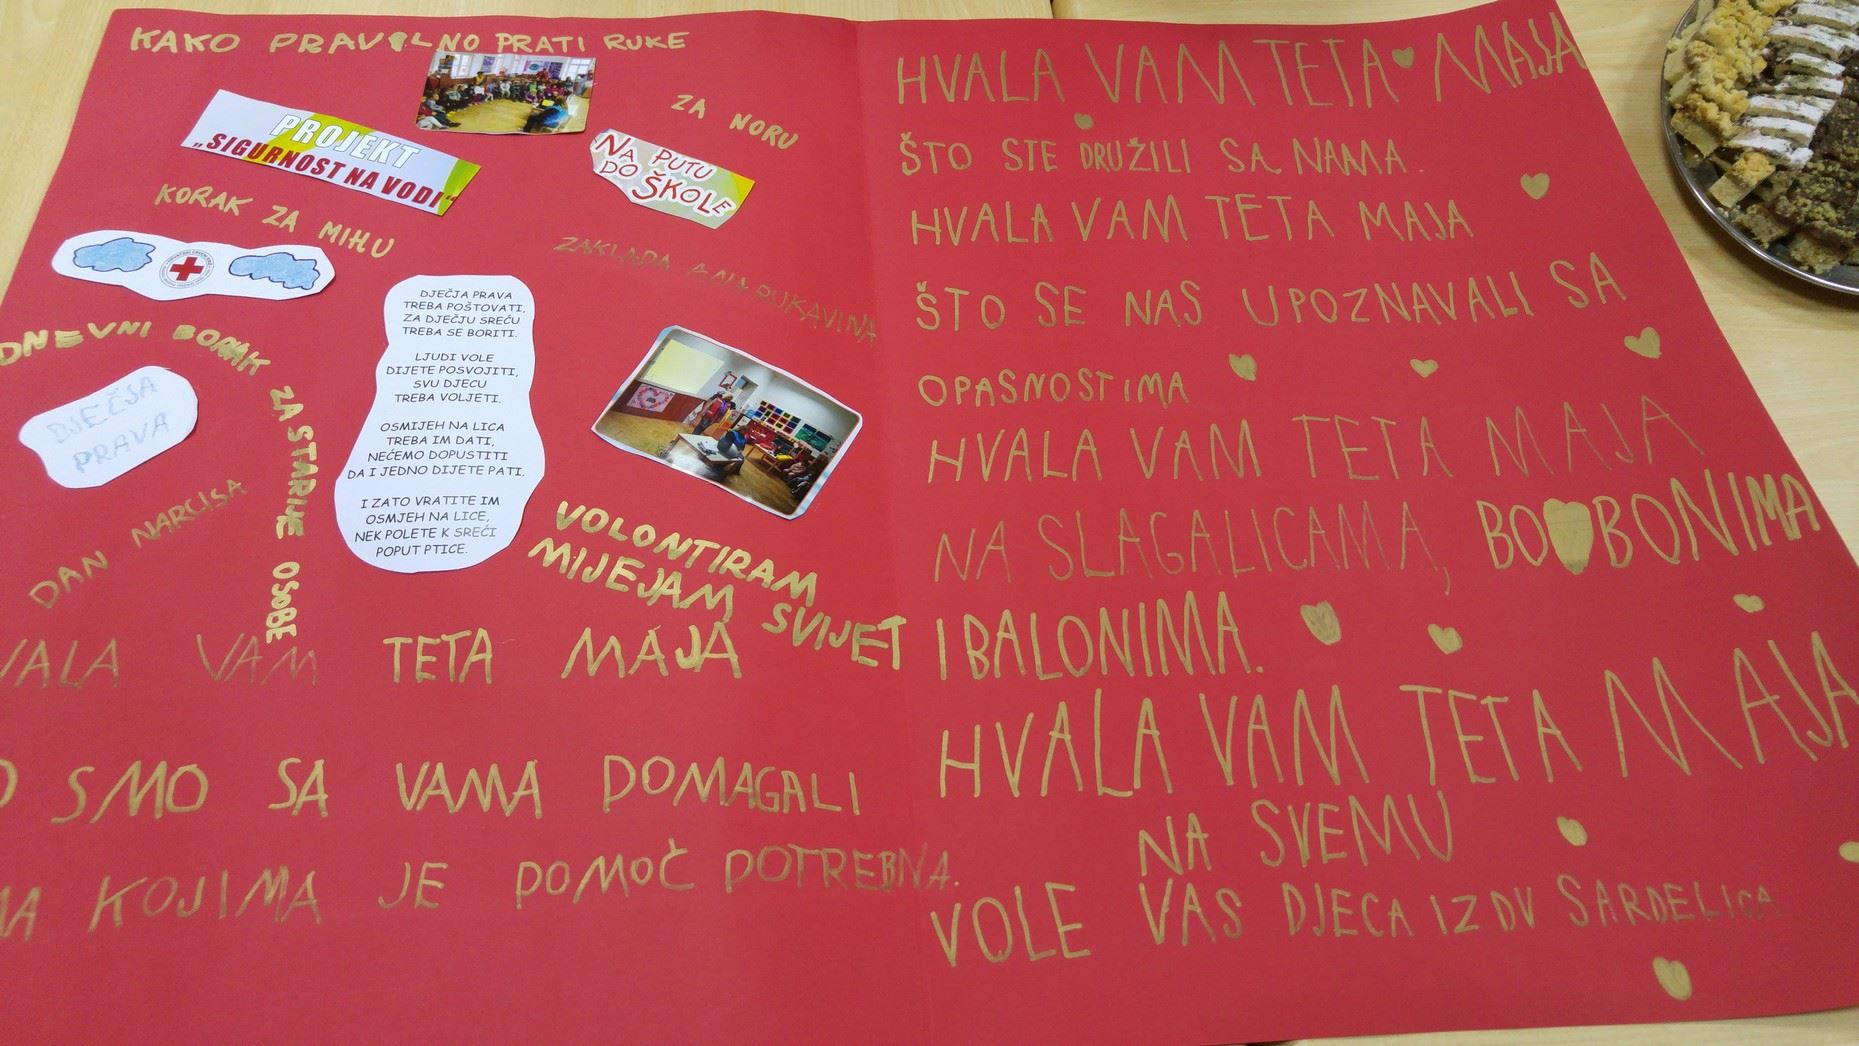 KAKO PRAVILNO PRATI RUKE
ZA NORU
PROJEKT
„SIGURNOST NA VODI“
NA PUTU
DO ŠKOLE
KORAK ZA MIHU
ZAKLADA ANA RUKAVINA
DNEVNI BORAK ZA STARIJE OSOBE
DJEČJA
PRAVA
DAN NARCISA
DJEČJA PRAVA
TREBA POŠTOVATI,
ZA DJEČJU SREĆU
TREBA SE BORITI.
LJUDI VOLE
DIJETE POSVOJITI,
SVU DJECU
TREBA VOLJETI.
OSMIJEH NA LICA
TREBA IM DATI,
NEĆEMO DOPUSTITI
DA I JEDNO DIJETE PATI.
I ZATO VRATITE IM
OSMJEH NA LICE,
NEK POLETE K SREĆI
POPUT PTICE.
VOLONTIRAM
MIJEJAM SVIJET
VALA VAM TETA MAJA
O SMO SA VAMA DOMAGALI
MA KOJIMA JE POMOČ POTREBNA.
HVALA VAM TETA MAJA
ŠTO STE DRUŽILI SA NAMA.
HVALA VAM TETA MAJA
ŠTO SE NAS UPOZNAVALI SA
OPASNOSTIMA
HVALA VAM TETA MAJA
NA SLAGALICAMA, BO BONIMA
I BALONIMA.
HVALA VAM TETA MAJA
NA SVEMU
VOLE VAS DJECA IZ DV SARDELICA